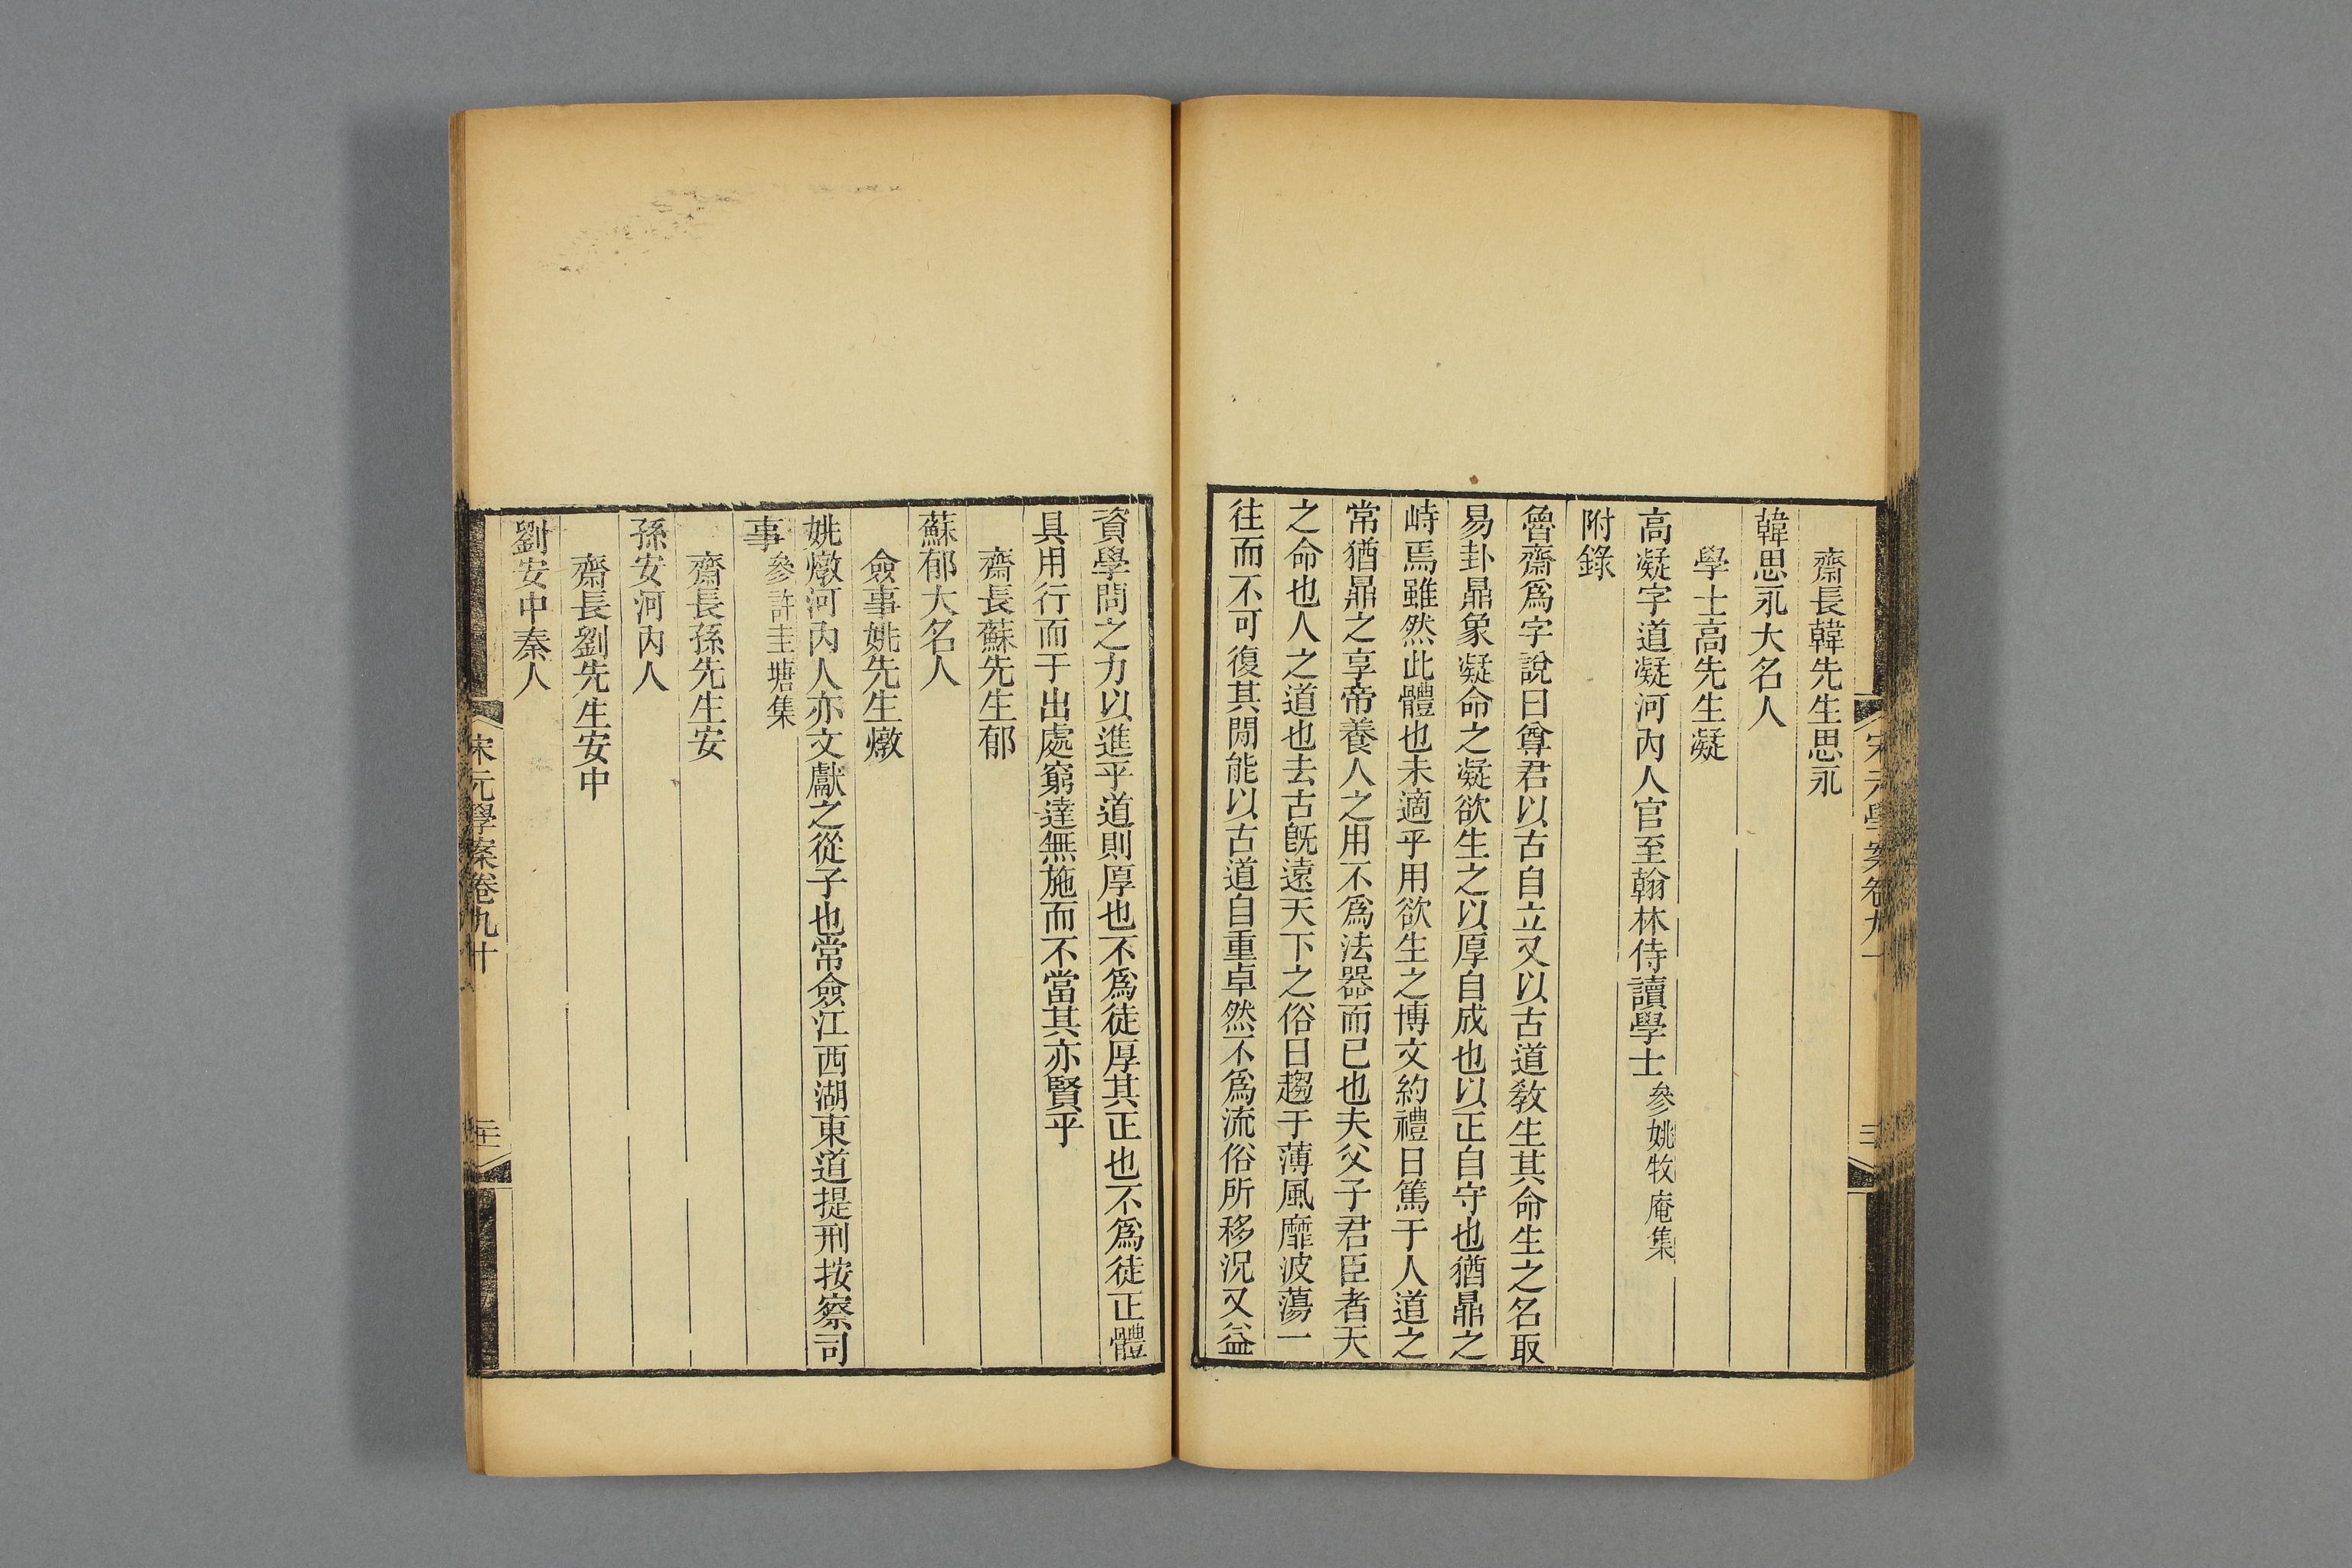 齋長韓先生思永
韓思永大名人
學士高先生凝
高凝字道凝河內人官至翰林侍讀學士參姚牧庵集
附錄
魯齋爲字說曰尊君以古自立又以古道敎生其命生之名取
易卦鼎象凝命之凝欲生之以厚自成也以正自守也猶鼎之
峙焉雖然此體也未適乎用欲生之博文約禮日篤于人道之
常猶鼎之享帝養人之用不爲法器而已也夫父子君臣者天
之命也人之道也去古旣遠天下之俗日趨于薄風靡波蕩一
往而不可復其閒能以古道自重卓然不爲流俗所移況又益
資學問之力以進乎道則厚也不爲徒厚其正也不爲徒正體
具用行而于出處窮達無施而不當其亦賢乎
齋長蘇先生郁
蘇郁大名人
僉事姚先生燉
姚燉河內人亦文獻之從子也常僉江西湖東道提刑按察司
事參許圭塘集
齋長孫先生安
孫安河內人
齋長劉先生安中
劉安中秦人
宋元學案卷九十